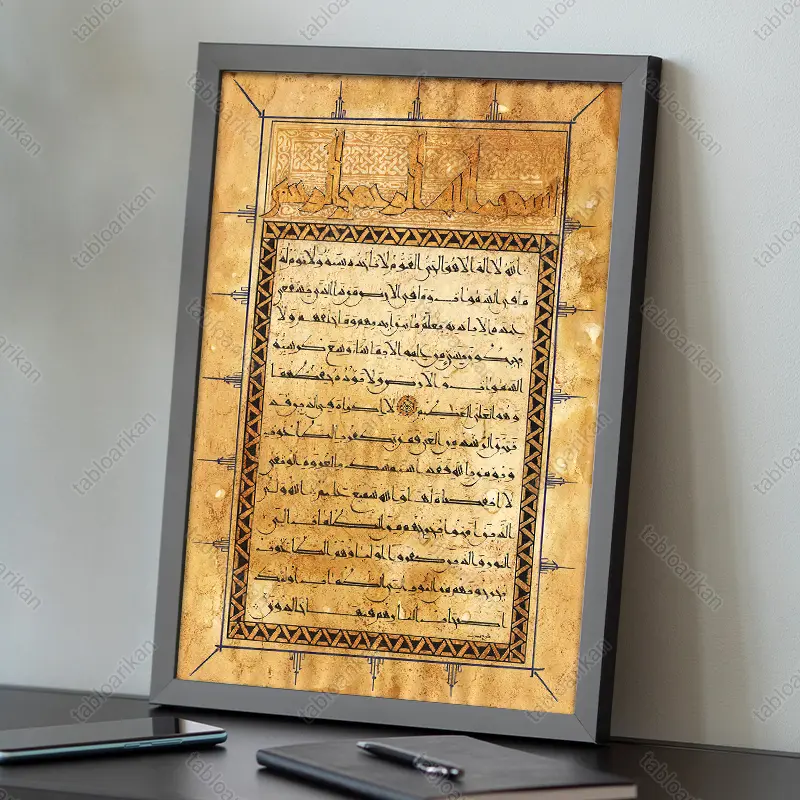 بسم الله الرحمن الرحيم
الله لا اله الا هو الحي القيوم لا تاخذه سنة ولا نوم له
ما في السموات وما في الارض من ذا الذي يشفع
عنده الا باذنه يعلم ما بين ايديهم وما خلفهم ولا
يحيطون بشيء من علمه الا بما شاء وسع كرسيه
السموات والارض ولا يؤده حفظهما
وهو العلي العظيم لا اكراه في الدين قد
تبين الرشد من الغي فمن يكفر بالطاغوت
ويؤمن بالله فقد استمسك بالعروة الوثقى
لا انفصام لها والله سميع عليم الله ولي
الذين آمنوا يخرجهم من الظلمات الى
النور والذين كفروا اولياؤهم الطاغوت
يخرجونهم من النور الى الظلمات اولئك
اصحاب النار هم فيها خالدون
tabloarikan